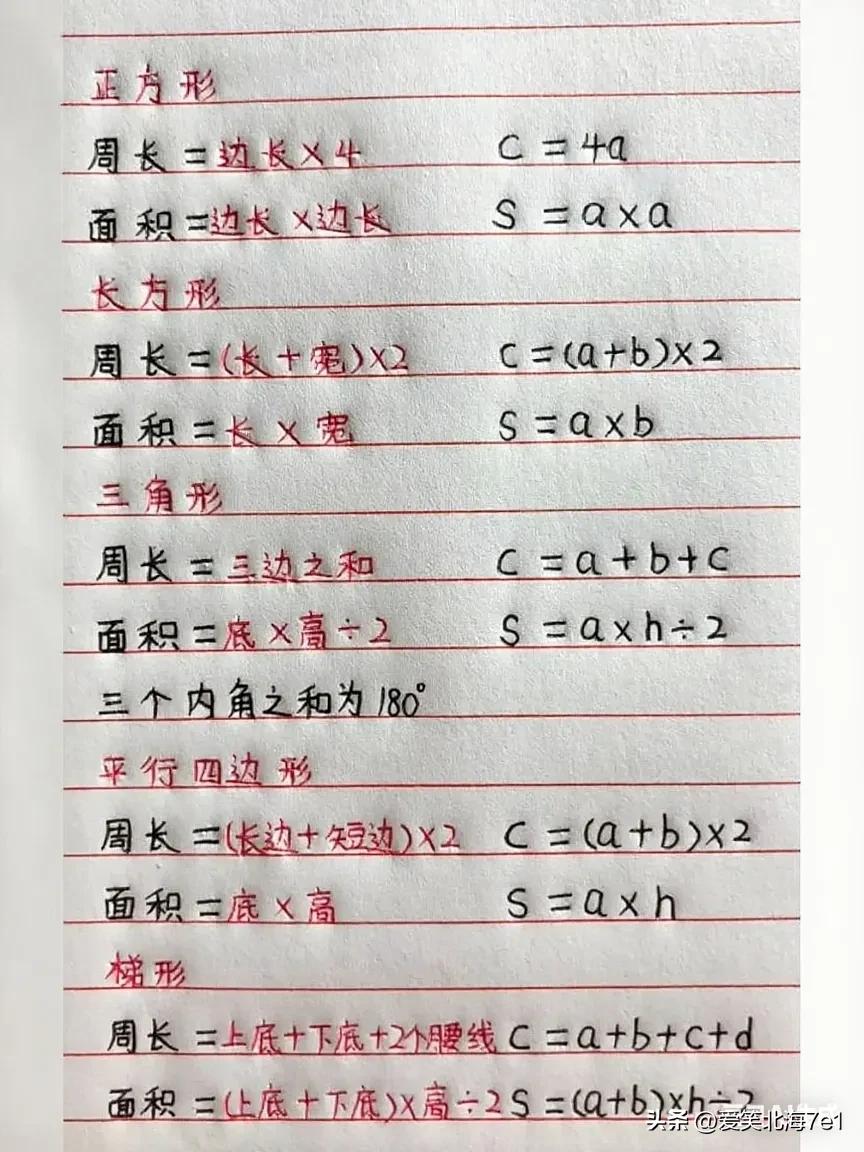 正方形
周长=边长×4 C=4a
面积=边长×边长 S=a×a
长方形
周长=(长+宽)×2 C=(a+b)×2
面积=长×宽 S=a×b
三角形
周长=三边之和 C=a+b+c
面积=底×高÷2 S=a×h÷2
三个内角之和为180°
平行四边形
周长=(长边+短边)×2 C=(a+b)×2
面积=底×高 S=a×h
梯形
周长=上底+下底+2个腰线 C=a+b+c+d
面积=(上底+下底)×高÷2 S=(a+b)×h÷2
头条 @爱笑北海7e1